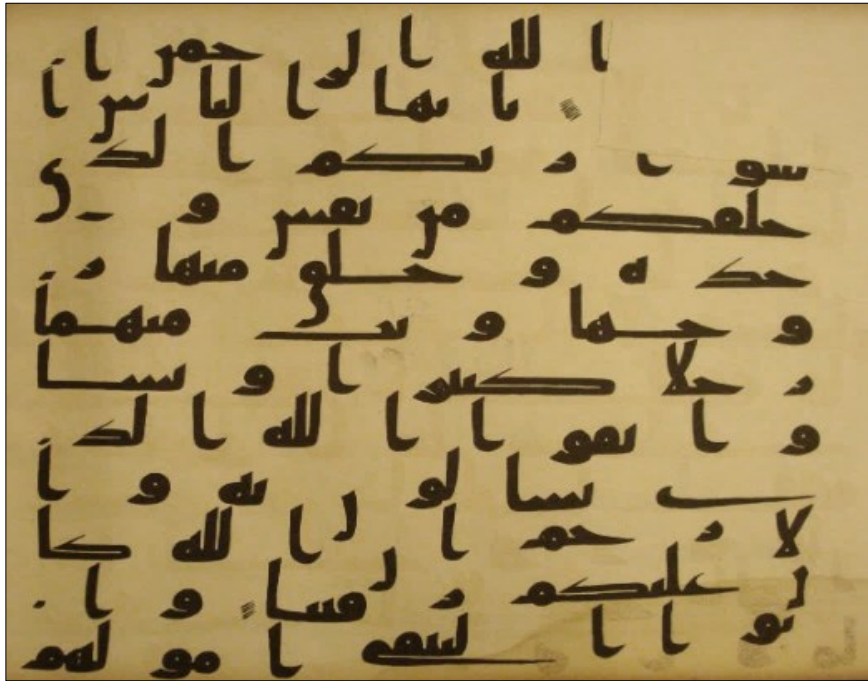 ا لله ا لر حمن ا
يا يها ا لنا س ا
تقو ا ر بكم ا لذي
خلقكم من نفس و
حد ة و خلق منها ز
و جها و بث منهما
ر جلا كثير ا و نسا
و ا تقو ا ا لله ا لذ
ي تسا لو ن به و ا
لا ر حم ا ن ا لله كا
ن عليكم ر قيبا و ا
تو ا ا ليتمى ا مو لهم